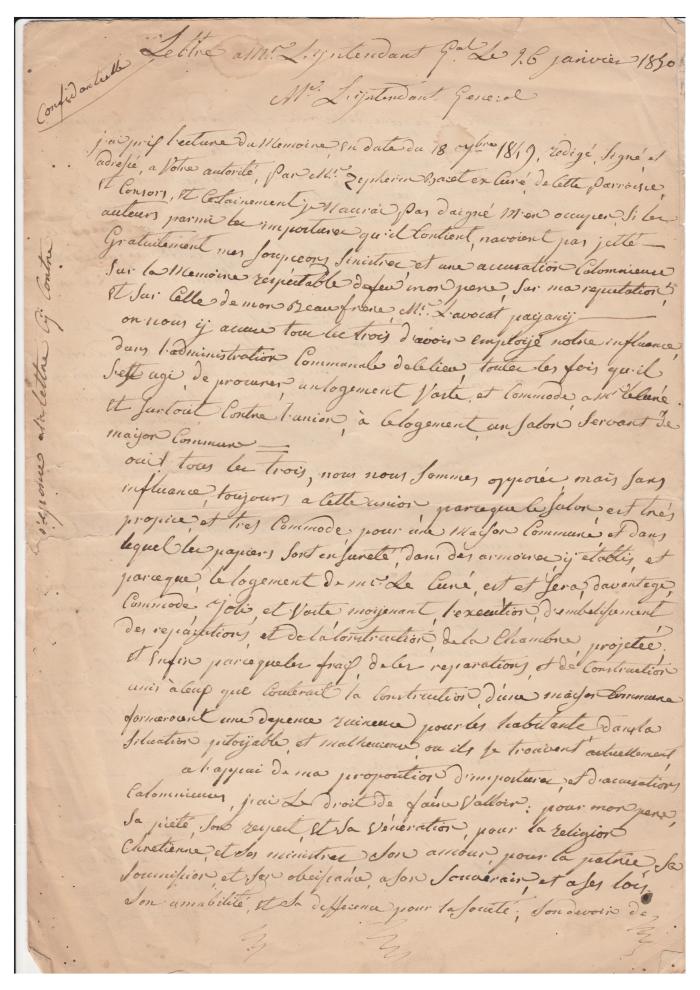 Lettre a Mr. L'yntendant Gal. Le 26 janvier 1850
Confidantielle
Mr. L'yntendant General
j'ai pris lecture du Memoire, en date du 18 1849, redigé, signé, et
adressé, a Votre autorité, par Mr. Zepherin ex Curé, de cette Parroisse,
et Consors, et Certainement je N'aurai pas daigné M'en occuper, Si les
auteurs parmi les impostures qu'il Contient, n'avoient pas jetté
Gratuitement mes Soupçons Sinistres et une accusation Calomnieuse
Sur la Memoire respectable de feu mon pere, Sur ma reputation,
et Sur Celle de mon Beaufrere, Mr. L'avocat
on nous y accuse tous les trois d'avoir employé notre influence,
dans l'administration Communale de ce lieu, toutes les fois qu'il
S'est agi de procurer, un logement Vaste, et Commode, a Mr. le Curé
et Surtout Contre l'union, à ce logement, un Salon Servant de
maison Commune
oui! tous les trois, nous nous Sommes opposés, mais Sans
influence, toujours a Cette union, parceque le Salon est très
propice, et tres Commode, pour une Maison Commune, et dans
lequel les papiers Sont en Sureté, dans des armoires, y établis, et
parceque, le logement de Mr. Le Curé, est et Sera, davantage,
Commode joli, et Vaste moyenant, l'execution, d'embelissement
des reparations, et de la Construction, de la Chambre, projetée,
et Enfin parceque les frais, de les reparations, et de Construction
unis à Ceux que Couterait la Construction, d'une maison Commune
formeroient une depence ruineuse pour les habitants, dans la
Situation pitoyable, et malheureuse, ou ils se trouvent actuellement
a l'appui de ma proposition d'impostures, et d'accusations
Calomnieuses, j'ai Le droit de faire Valloir: pour mon pere,
Sa pieté, Son respect, et Sa Vénération, pour la religion
Chretienne, et Ses ministres Son amour, pour la patrie, Sa
Soumission, et Son obeissance, a Son Souverain, et a Ses lois,
Son amabilité, et Sa defference pour la Societé; Son devoir de
réponse a la lettre Cy Contre